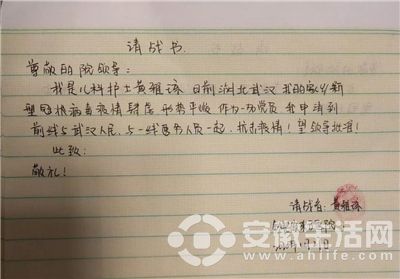 请战书
尊敬的院领导:
我是儿科护士黄祖 目前湖北武汉 我的家乡新
型冠状病毒疫情肆虐 形势严峻,作为一为党员 我申请到
前线与武汉人民、与一线医务人员一起,抗击疫情!望领导批准!
此致:
敬礼!
请战者:黄祖
安徽生活网
www.ahlife.com